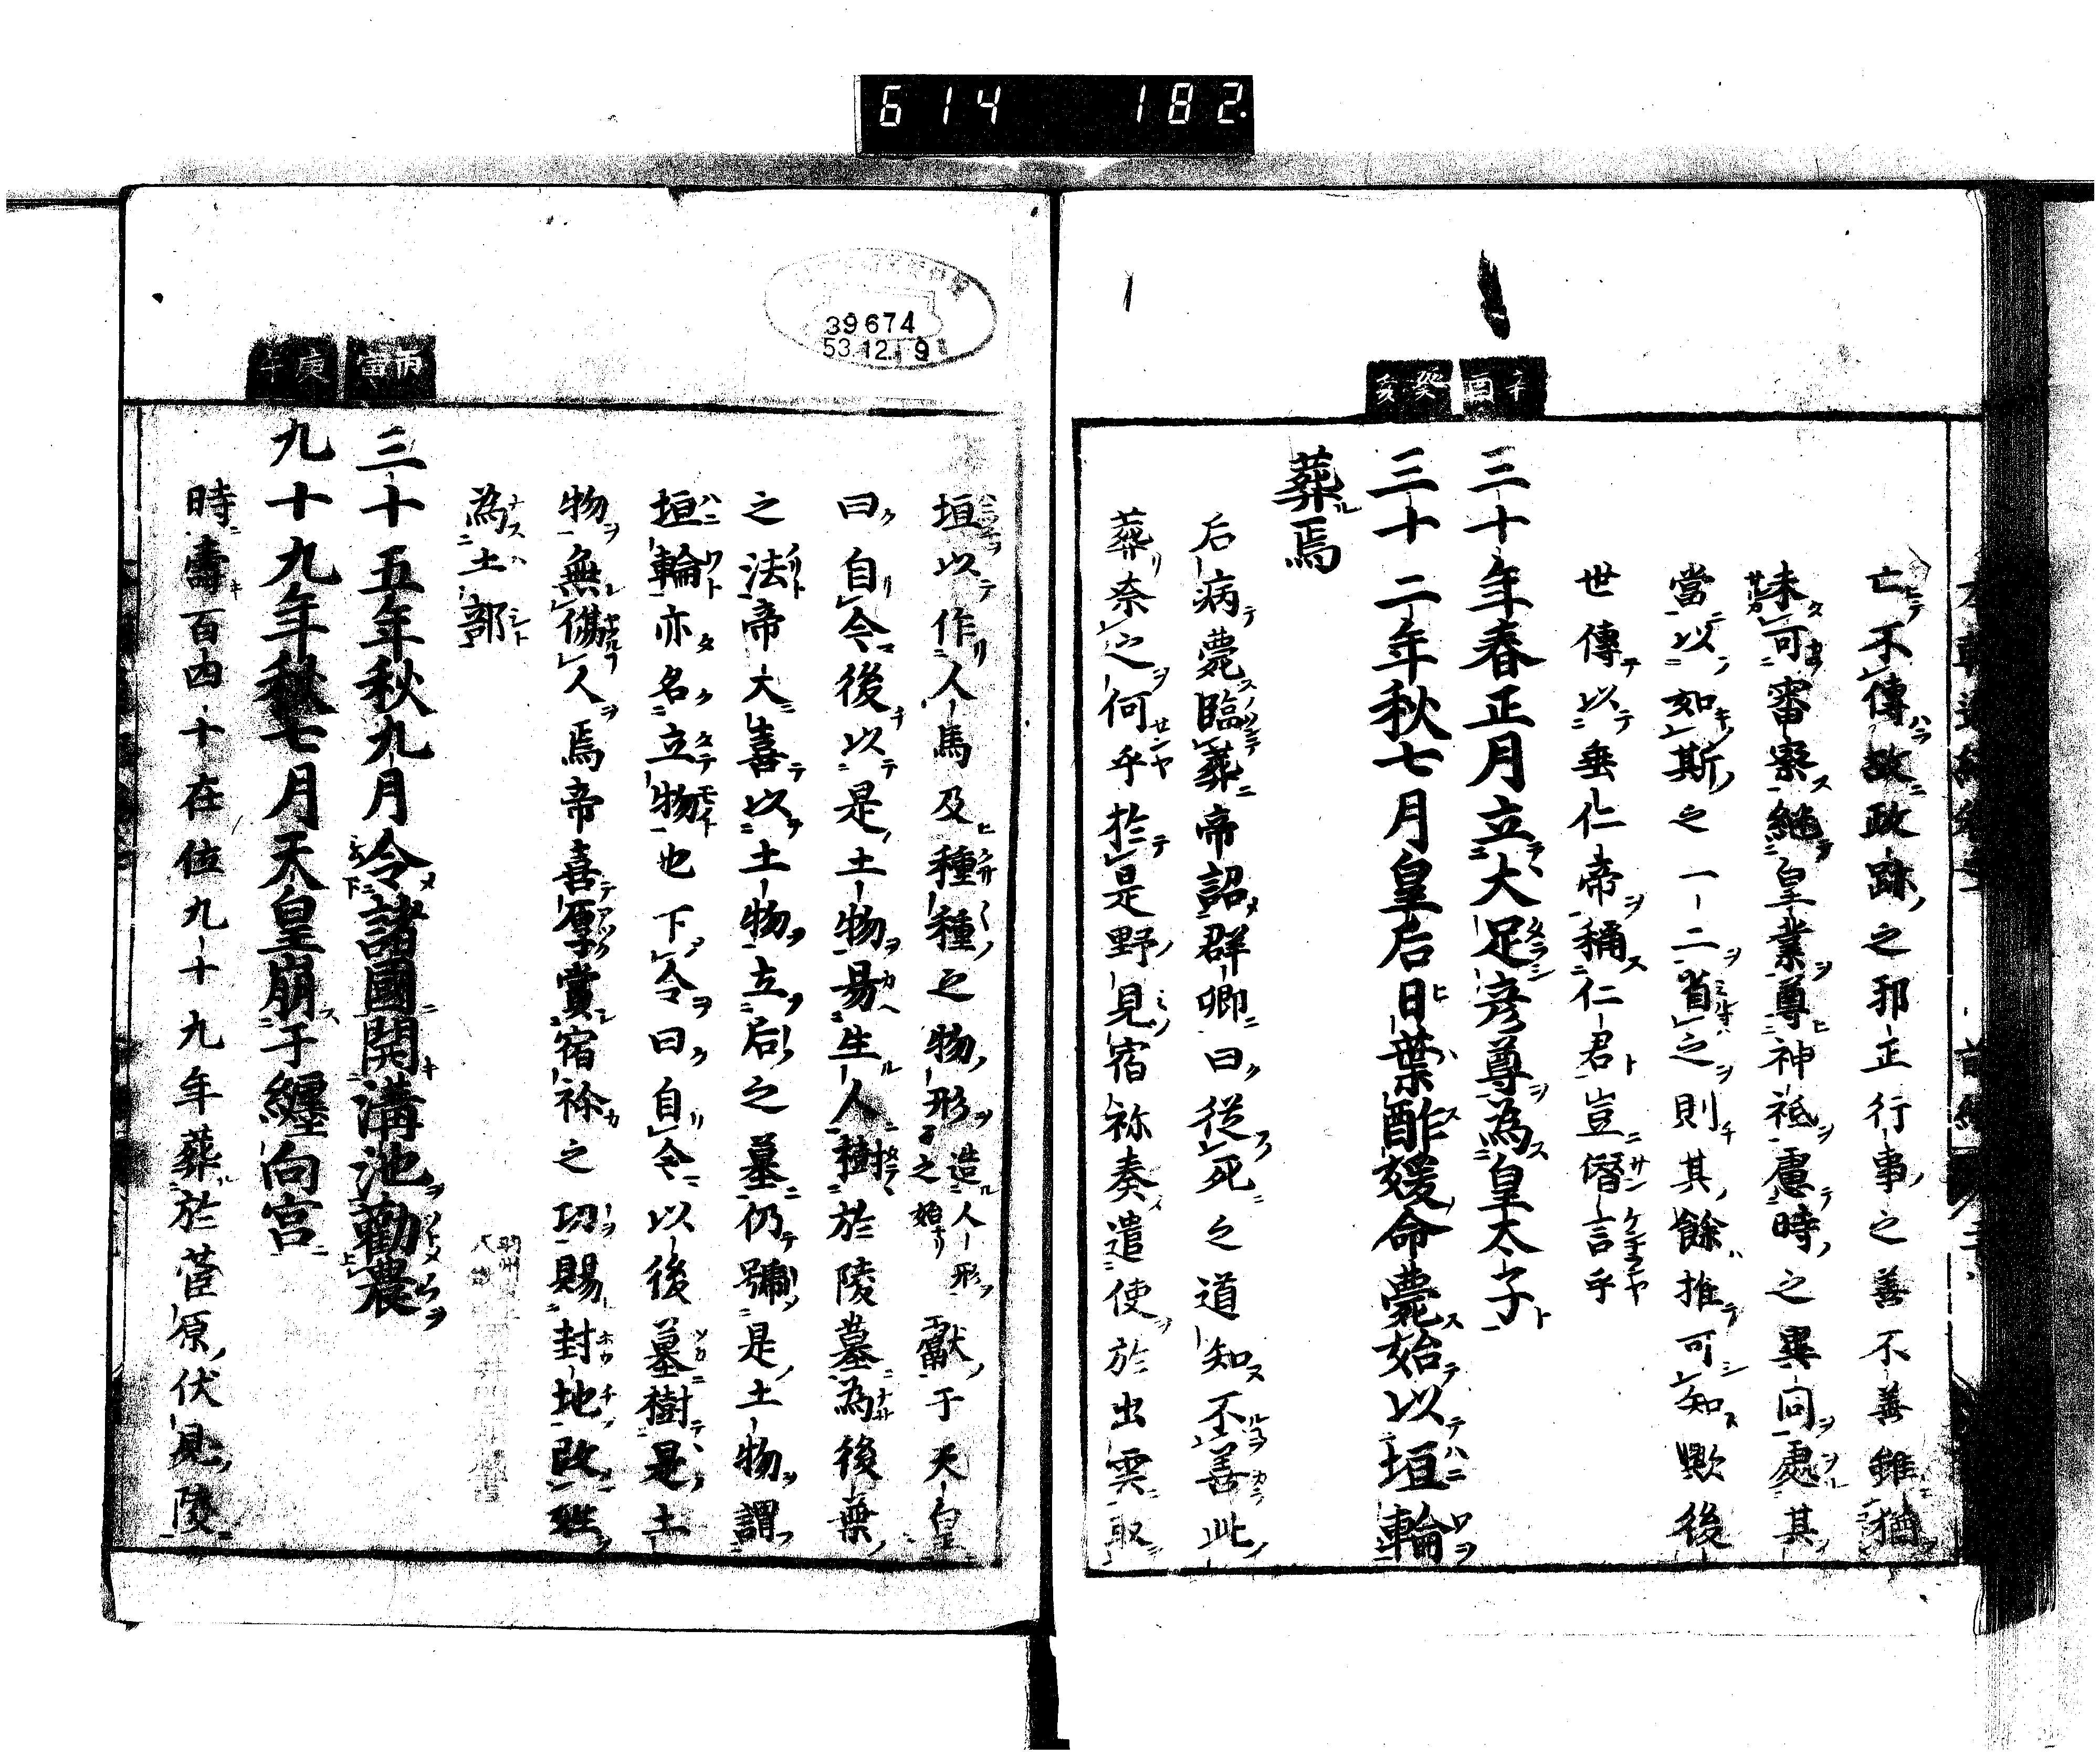 614 182.
辛酉
癸亥
亡不傳故政跡之邪正行事之善不善雖猶
未可審察繼皇業尊神祇慮時之異同處其
當以如斯之一二省之則其餘推可知歟後
世傳以垂仁帝稱仁君豈僭言乎
三十年春正月立大足彦尊為皇太子
三十二年秋七月皇后日葉酢媛命薨始以垣輪
葬焉
后病薨臨葬帝詔群卿曰從死之道知不善此
葬奈之何乎於是野見宿祢奏遣使於出雲取
39674
53.12.19
丙寅
庚午
垣以作人馬及種種之物形造人形之始獻于天皇
曰自今後以是土物易生人樹於陵墓為後葉
之法帝大喜以土物立后之墓仍號是土物謂
垣輪亦名立物也下令曰自今以後墓樹是土
物無傷人焉帝喜厚賞宿祢之功賜封地改姓
為土部
三十五年秋九月令諸國開溝池勸農
九十九年秋七月天皇崩于纒向宮
時壽百四十在位九十九年葬於菅原伏見陵